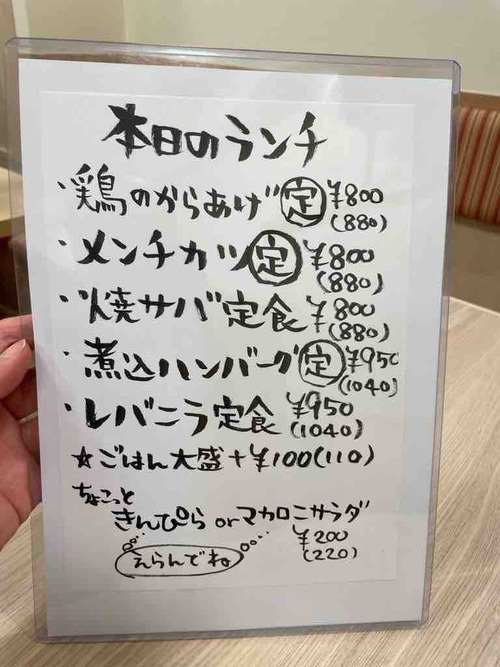 本日のランチ
・鶏のからあげ定 ¥800
(880)
・メンチカツ定 ¥800
(880)
・焼サバ定食 ¥800
(880)
・煮込ハンバーグ定 ¥950
(1040)
・レバニラ定食 ¥950
(1040)
☆ごはん大盛+¥100(110)
ちょこっと
きんぴら orマカロニサラダ
¥200
えらんでね
(220)